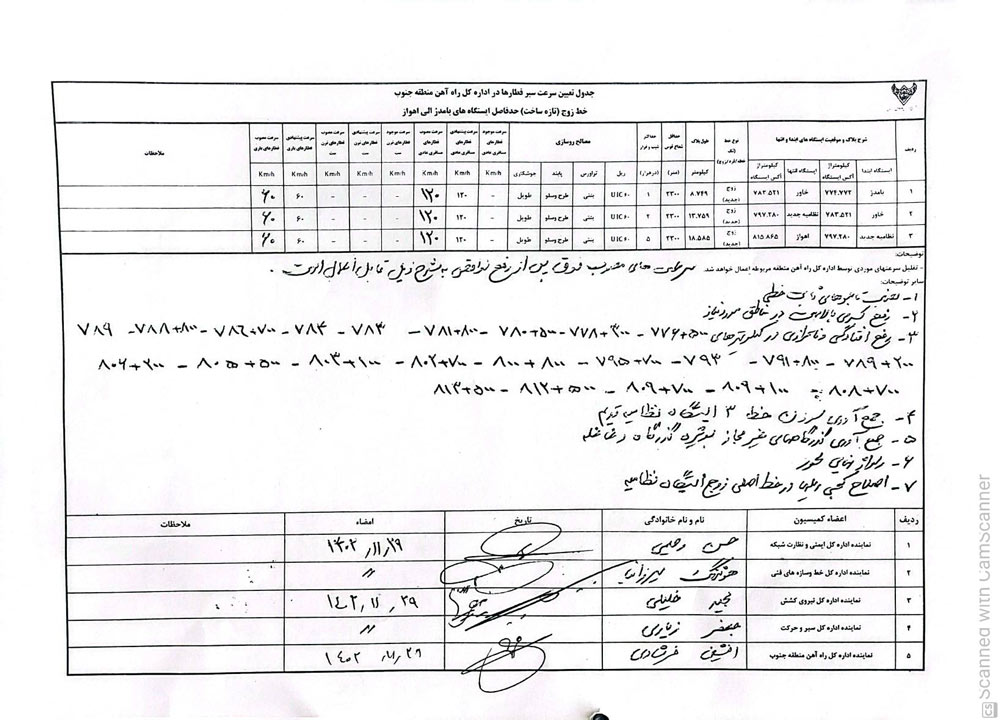 جدول تعیین سرعت سیر قطارها در اداره کل راه آهن منطقه جنوب
خط زوج (تازه ساخت) حدفاصل ایستگاه های بامدژ الی اهواز
ردیف شرح بلاک و موقعیت ایستگاه های ابتدا و انتها نوع خط طول بلاک حداقل شعاع قوس حداکثر شیب و فراز مصالح روسازی سرعت موجود قطارهای مسافری عادی سرعت پیشنهادی قطارهای مسافری عادی سرعت مصوب قطارهای مسافری عادی سرعت موجود قطارهای ترن ست سرعت پیشنهادی قطارهای ترن ست سرعت مصوب قطارهای ترن ست سرعت پیشنهادی قطارهای باری سرعت مصوب قطارهای باری ملاحظات
ایستگاه ابتدا کیلومتراژ آکس ایستگاه ایستگاه انتها کیلومتراژ آکس ایستگاه کیلومتر (متر) (درهزار) ریل تراورس پابند جوشکاری Km/h Km/h Km/h Km/h Km/h Km/h Km/h Km/h
۱ بامدژ ۷۷۴.۷۷۲ خاور ۷۸۳.۵۲۱ زوج (جدید) ۸.۷۴۹ ۲۲۰۰ ۱ UIC۶۰ بتنی طرح وسلو طویل - ۱۲۰ ۱۲۰ - - - ۶۰ ۶۰
۲ خاور ۷۸۳.۵۲۱ نظامیه جدید ۷۹۷.۲۸۰ زوج (جدید) ۱۳.۷۵۹ ۲۲۰۰ ۲ UIC۶۰ بتنی طرح وسلو طویل - ۱۲۰ ۱۲۰ - - - ۶۰ ۶۰
۳ نظامیه جدید ۷۹۷.۲۸۰ اهواز ۸۱۵.۸۶۵ زوج (جدید) ۱۸.۵۸۵ ۲۲۰۰ ۵ UIC۶۰ بتنی طرح وسلو طویل - ۱۲۰ ۱۲۰ - - - ۶۰ ۶۰
توضیحات:
- تقلیل سرعتهای موردی توسط اداره کل راه آهن منطقه مربوطه اعمال خواهد شد. سرعت های مصوب فوق پس از رفع نواقص به شرح ذیل قابل اعمال است.
سایر توضیحات:
۱- تابلوهای خطی
۲- رفع کسری بالاست در مناطق مورد نیاز
۳- رفع افتادگی و ناترازی در کیلومترهای ۷۷۶+۵۰۰ - ۷۷۸+۳۰۰ - ۷۸۰+۵۰۰ - ۷۸۱+۸۰۰ - ۷۸۳ - ۷۸۴ - ۷۸۶+۷۰۰ - ۷۸۸+۸۰۰ - ۷۸۹
۷۸۹+۲۰۰ - ۷۹۱+۸۰۰ - ۷۹۳ - ۷۹۵+۷۰۰ - ۸۰۰+۸۰۰ - ۸۰۲+۷۰۰ - ۸۰۳+۱۰۰ - ۸۰۵+۵۰۰ - ۸۰۶+۲۰۰
۸۰۸+۷۰۰ - ۸۰۹+۱۰۰ - ۸۰۹+۷۰۰ - ۸۱۲+۵۰۰ - ۸۱۳+۵۰۰
۴- جمع آوری سوزن خط ۳ ایستگاه نظامیه قدیم
۵- جمع آوری گذرگاههای غیر مجاز گذرگاه
۶-
۷- اصلاح کجی ریلها در خط اصلی زوج ایستگاه نظامیه
ردیف اعضاء کمیسیون نام و نام خانوادگی تاریخ امضاء ملاحظات
۱ نماینده اداره کل ایمنی و نظارت شبکه حسن ۱۴۰۲/۱۱/۲۹
۲ نماینده اداره کل خط وسازه های فنی هوشنگ میرزانیا 〃
۳ نماینده اداره کل نیروی کشش مجید خلیلی ۱۴۰۲/۱۱/۲۹
۴ نماینده اداره کل سیر و حرکت جعفر زیاری 〃
۵ نماینده اداره کل راه آهن منطقه جنوب افشین فرشادی ۱۴۰۲/۱۱/۲۹
CS Scanned with CamScanner